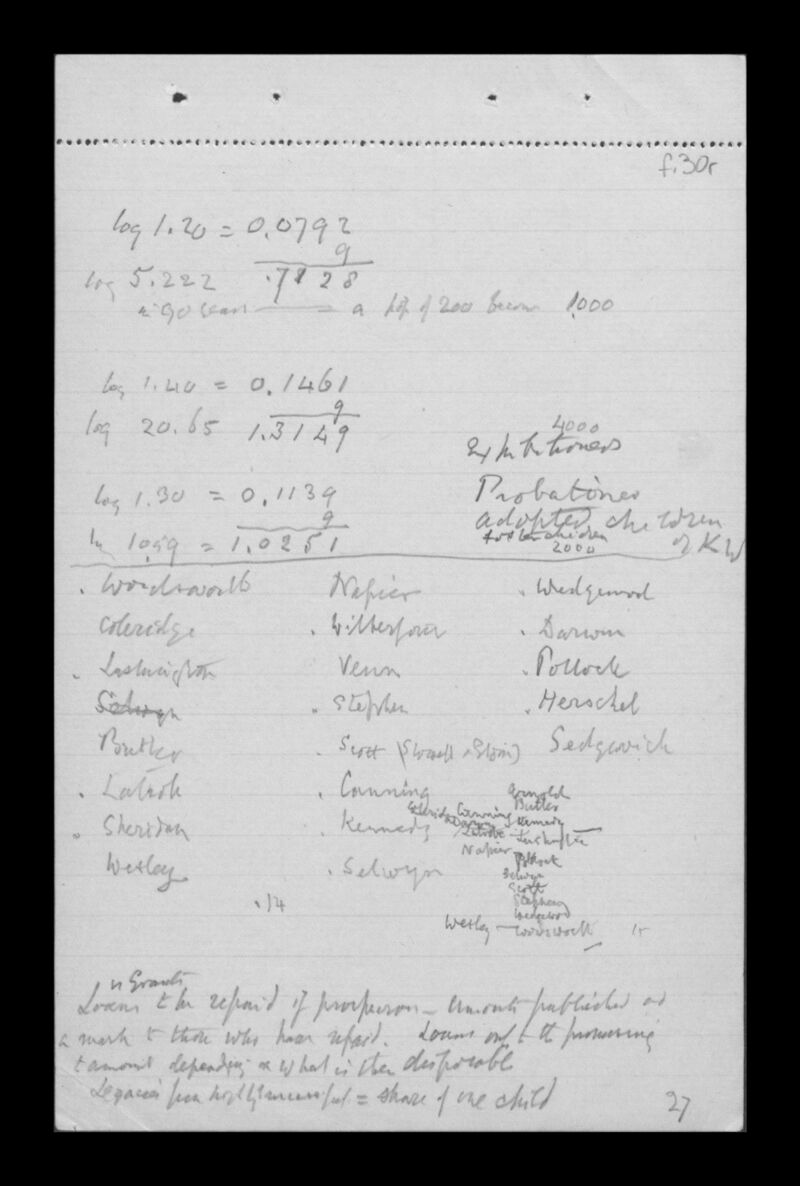 f.30r
log 1.20 = 0.0792
9
log 5.222 .7128
in 90 years = a pop of 200 becomes 1,000
log 1.40 = 0.1461
9
log 20.65 1.3149
4000
Exhibitioners
log 1.30 = 0.1139
9
Probationers
adopted children of KW
foster children
2000
10.59 = 1.0251
. Wordsworth Napier . Wedgewood
Coleridge . Wilberforce . Darwin
. Lushington Venn . Pollock
Selwyn . Stephen . Herschel
Butler . Scott (Stowell & Eldon) Sedgwick
. Latrobe . Canning
. Sheridan . Kennedy
Wesley . Selwyn
. 14
Arnold
Butler
Coleridge Canning
Darwin Kennedy
Latrobe - Lushington
Napier - Pollock
Selwyn
Scott
Stephen
Wedgewood
Wesley - Wordsworth 15
or Grants
Loans to be repaid if prosperous - amounts published as
a mark to those who have repaid. Loans only to the promising
& amount depending on what is then disposable
Legacies from highly successful = share of one child
27